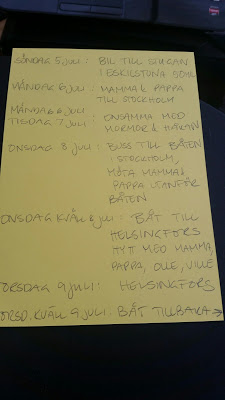 SÖNDAG 5 JULI: BIL TILL STUGAN
I ESKILSTUNA
MÅNDAG 6 JULI: MAMMA & PAPPA
TILL STOCKHOLM
MÅNDAG 6
TISDAG 7 JULI: ENSAMMA MED
MORMOR & HÅKAN
ONSDAG 8 JULI: BUSS TILL BÅTEN
I STOCKHOLM,
MÖTA MAMMA &
PAPPA UTANFÖR
BÅTEN
ONSDAG KVÄLL 8 JULI: BÅT TILL
HELSINGFORS
HYTT MED MAMMA,
PAPPA, OLLE, VILLE
TORSDAG 9 JULI: HELSINGFORS
TORSD. KVÄLL 9 JULI: BÅT TILLBAKA →